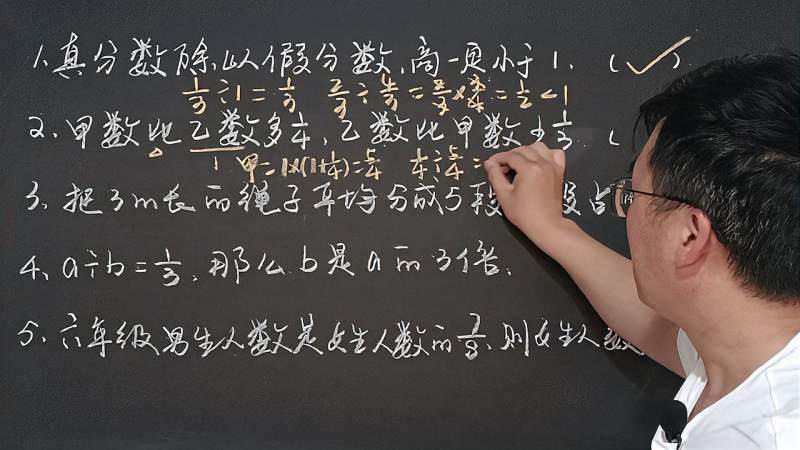 1、真分数除以假分数,商一定小于1. (✓)
1/3÷1=1/3 2/3÷4/3=2/3×3/4=1/2<1
2、甲数比乙数多1/4,乙数比甲数少 (
1 甲=1×(1+1/4)=5/4 1/4÷5/4=
3、把3m长的绳子平均分成5段 段占
4、a÷b=1/3,那么b是a的3倍.
5、六年级男生人数是女生人数的 则女生人数